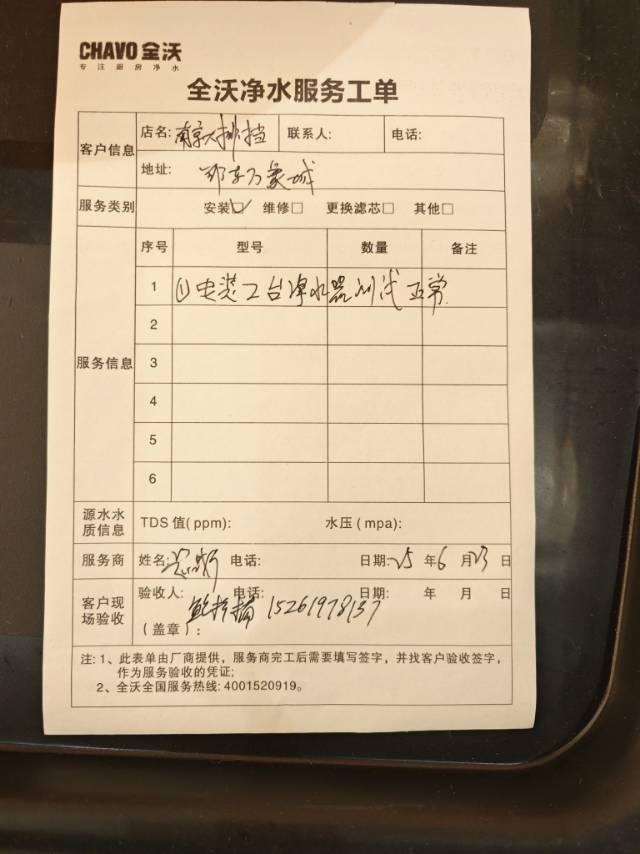 CHAVO 全沃
专注厨房净水
全沃净水服务工单
客户信息
店名: 南京大排挡 联系人: 电话:
地址: 邗东万象城
服务类别 安装☑ 维修□ 更换滤芯□ 其他□
服务信息
序号 型号 数量 备注
1 ①安装2台净水器测试正常
2
3
4
5
6
源水水质信息 TDS 值(ppm): 水压(mpa):
服务商 姓名: 电话: 日期: 25 年 6 月 23 日
客户现场验收 验收人: 电话: 15261978137 日期: 年 月 日
(盖章):
注: 1、此表单由厂商提供，服务商完工后需要填写签字，并找客户验收签字，
作为服务验收的凭证;
2、全沃全国服务热线: 4001520919。